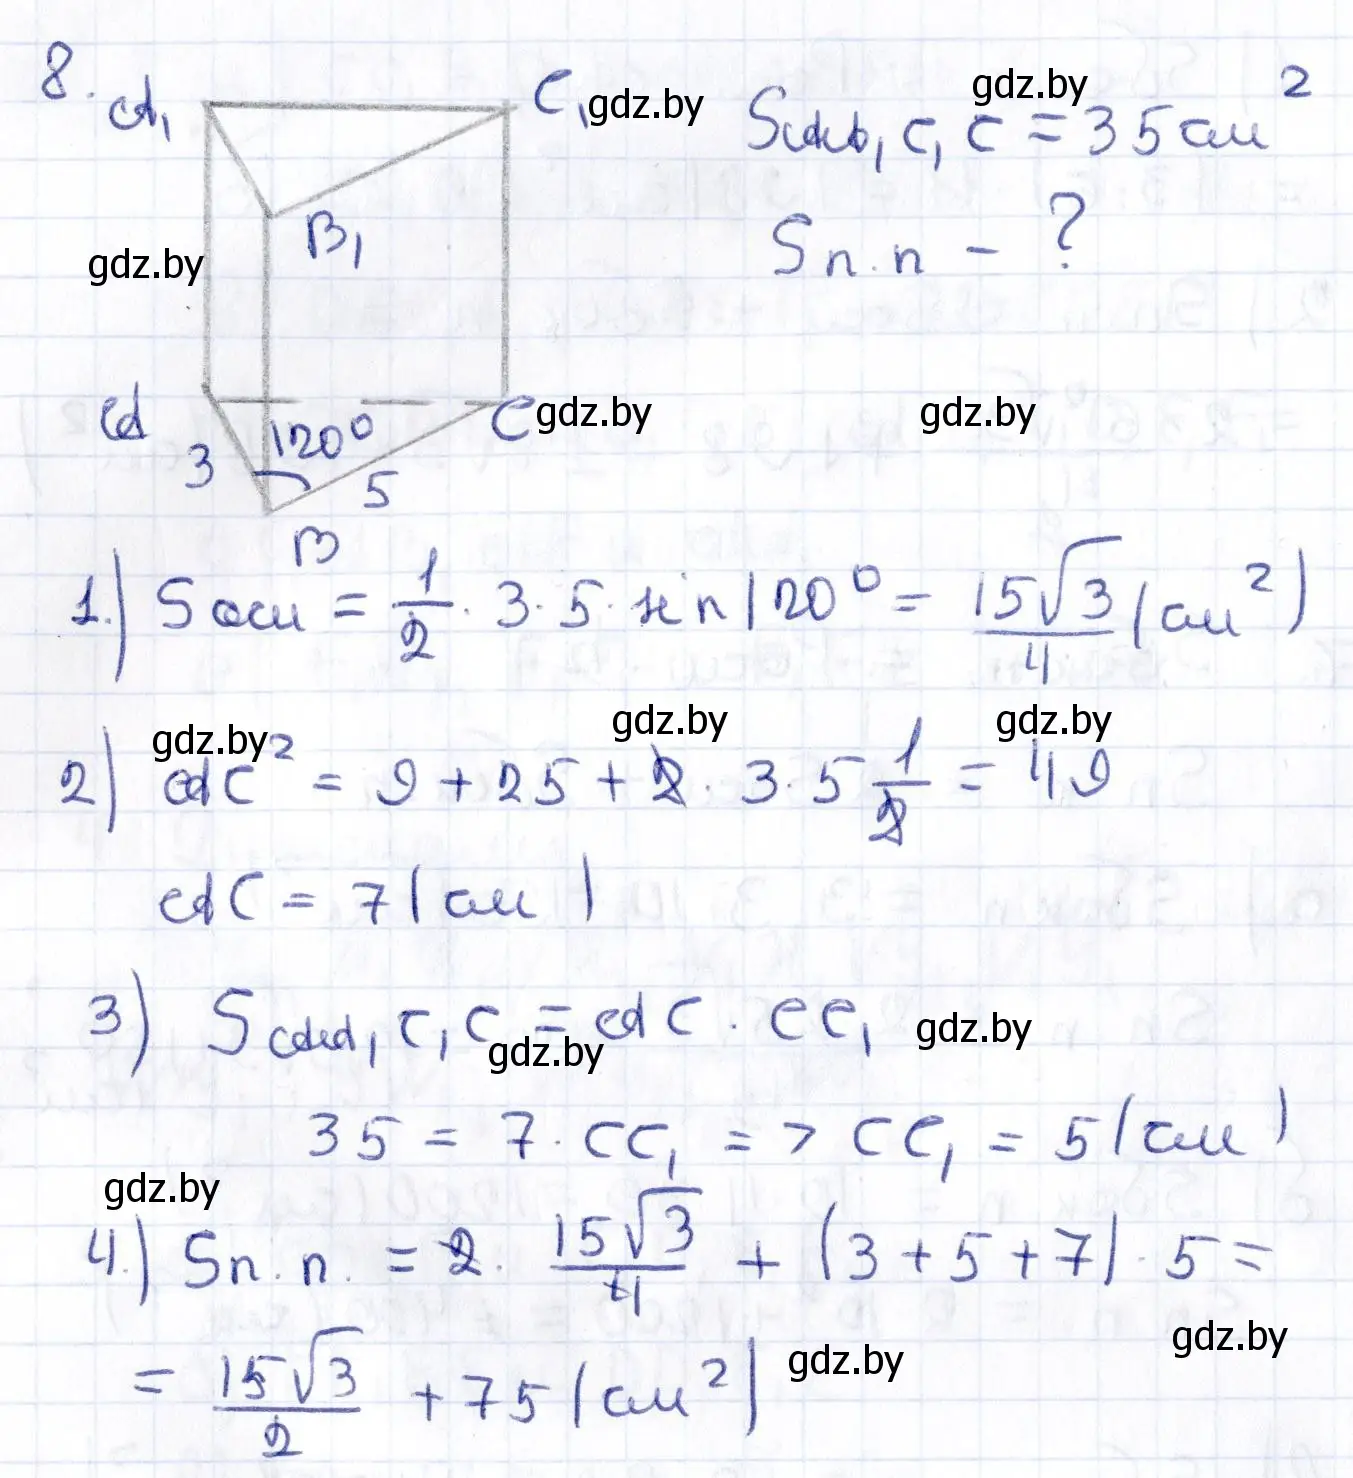 8.
A₁ C₁ gdz.by gdz.by
S_{AA₁C₁C} = 35 см²
B₁
gdz.by S п.п – ?
A 120° C gdz.by gdz.by
3 5
B
1.) S осн = 1/2 · 3 · 5 · sin 120° = 15√3/4 (см²)
gdz.by gdz.by gdz.by
2) AC² = 9 + 25 + 2 · 3 · 5 1/2 = 49
AC = 7 (см)
3) S_{AA₁C₁C} = AC · CC₁ gdz.by
gdz.by
35 = 7 · CC₁ => CC₁ = 5 (см)
gdz.by
4.) S п.п. = 2 · 15√3/4 + (3 + 5 + 7) · 5 =
gdz.by
= 15√3/2 + 75 (см²) gdz.by